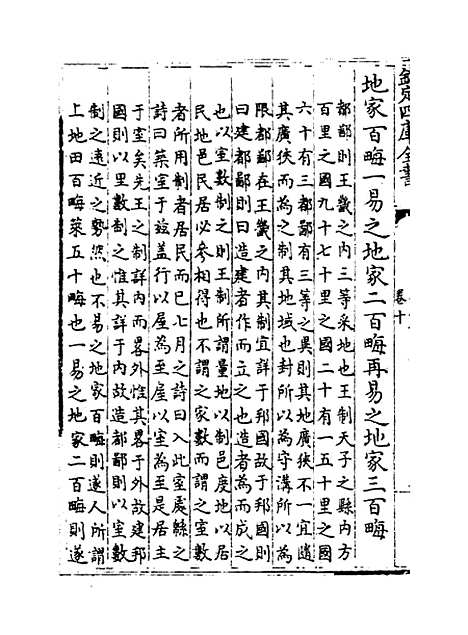 欽定四庫全書
卷十
地家百畮一易之地家二百畮再易之地家三百畮
都鄙則王畿之内三等采地也王制天子之縣内方
百里之國九十七十里之國二十有一五十里之國
六十有三都鄙有三等之異則其地廣狹不一宜隨
其廣狹而為之制其地域也封所以為守溝所以為
限都鄙在王畿之内其制宜詳于邦國故于邦國則
曰建都鄙則曰造建者作而立之也造者為而成之
也以室數制之則王制所謂量地以制邑度地以居
民地邑民居必參相得也不謂之家數而謂之室數
者所用制者居民而已七月之詩曰入此室處緜之
詩曰築室于兹蓋行以屋為至屋以室為至是居主
于室矣先王之制詳内而畧外惟其畧于外故建邦
國則以里數制之惟其詳于内故造都鄙則以室數
制之逺近之勢然也不易之地家百畮則遂人所謂
上地田百畮萊五十畮也一易之地家二百畮則遂